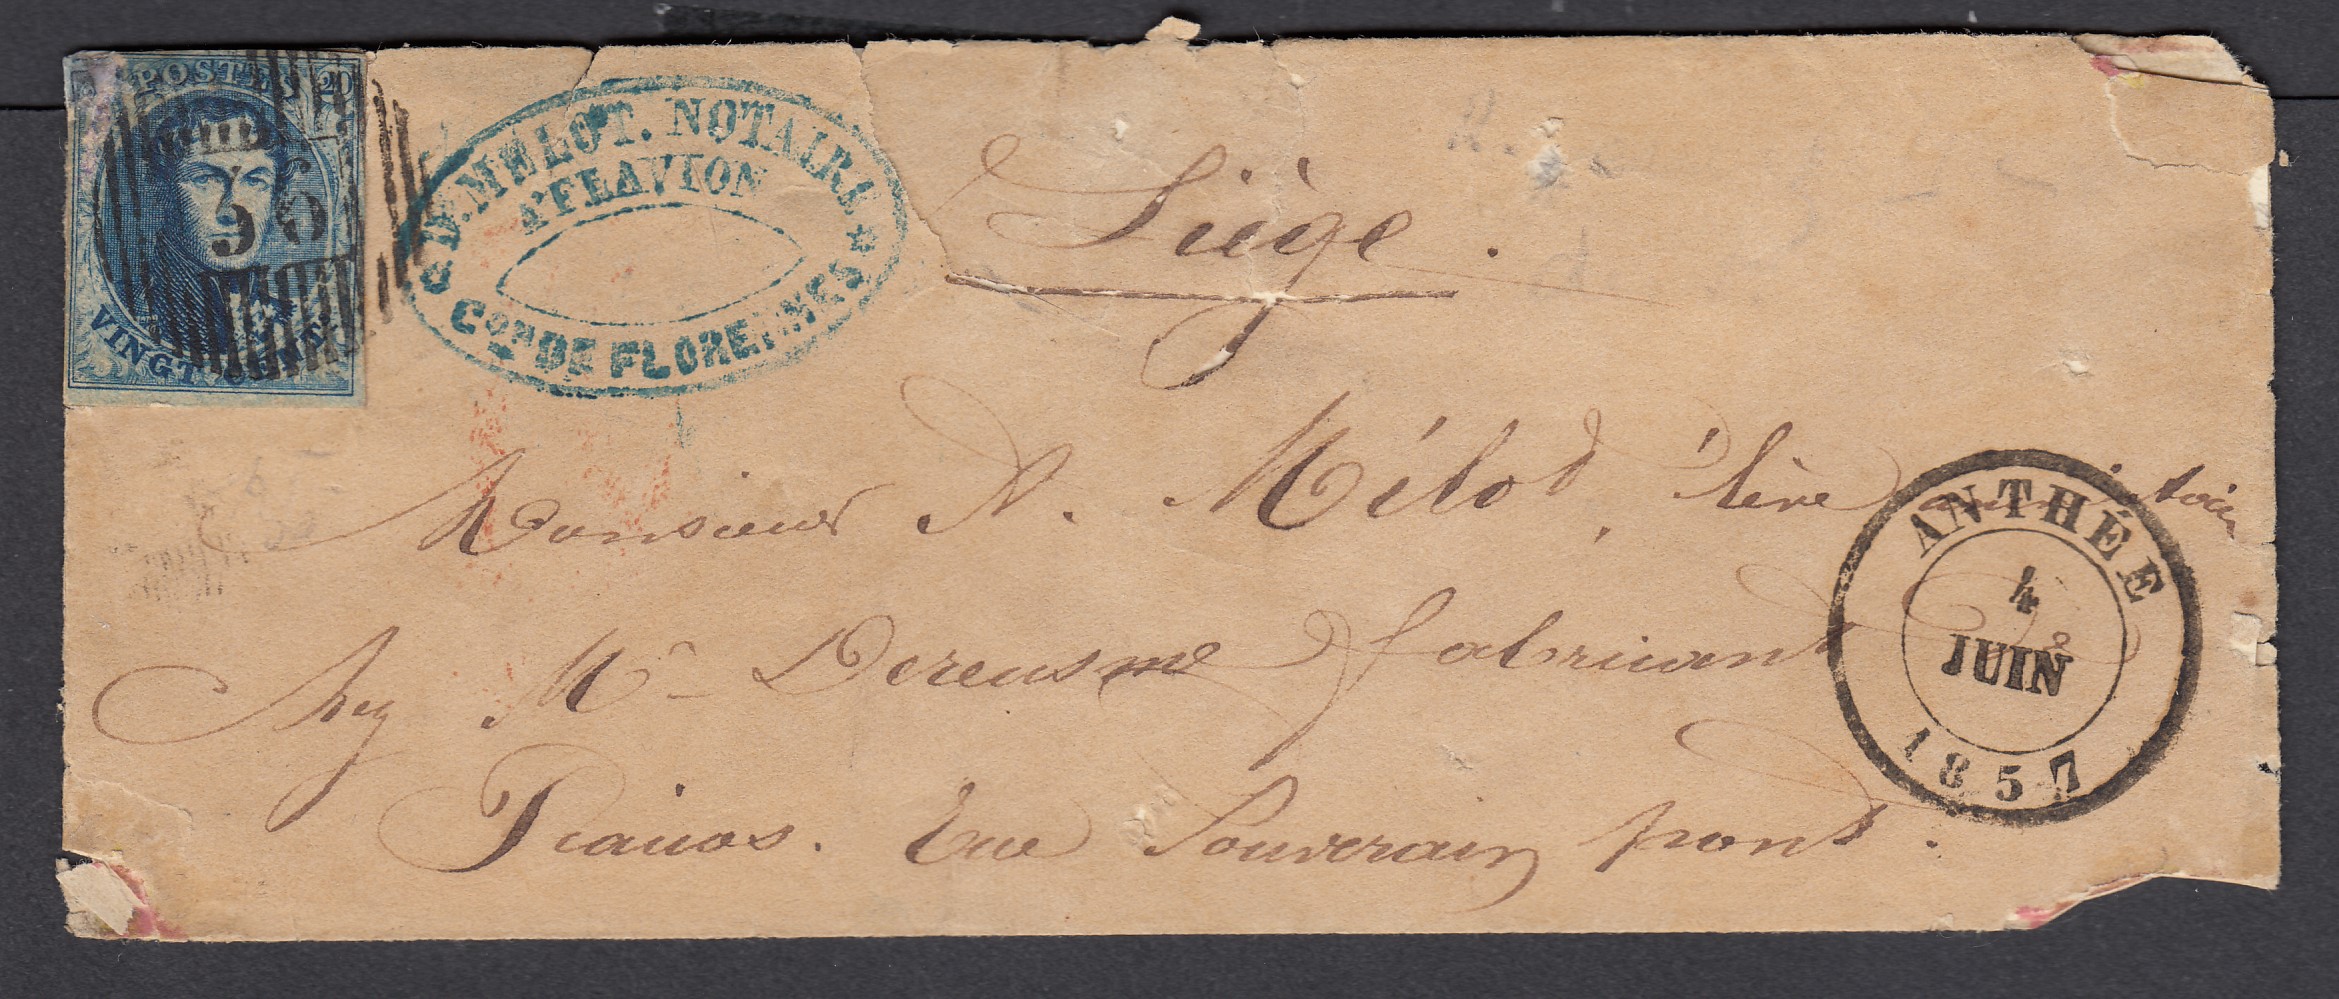 POSTES 20
VINGT CENTS
D. MELOT. NOTAIRE
A FLAVION
Con DE FLORENNES
Liège.
Monsieur A. Mélot, élève
Chez Mr Dereusme fabricant de
Pianos. Rue Souverain pont.
ANTHÉE
4
JUIN
1857